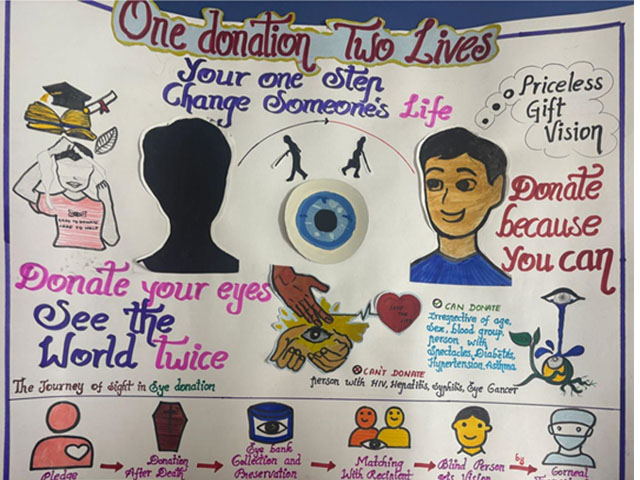 One donation Two Lives
Your one Step
Change Someone's Life
Priceless
Gift
Vision
Donate
because
You can
Donate your eyes
See the
World Twice
CAN DONATE
Irrespective of age,
Sex, blood group,
person with
Spectacles, Diabetes,
Hypertension, Asthma
CAN'T DONATE
person with HIV, Hepatitis, Syphilis, Eye Cancer
The Journey of Sight in Eye donation
Pledge
Donation
After Death
Eye bank
Collection and
Preservation
Matching
With Recipient
Blind Person
gets Vision
by
Corneal